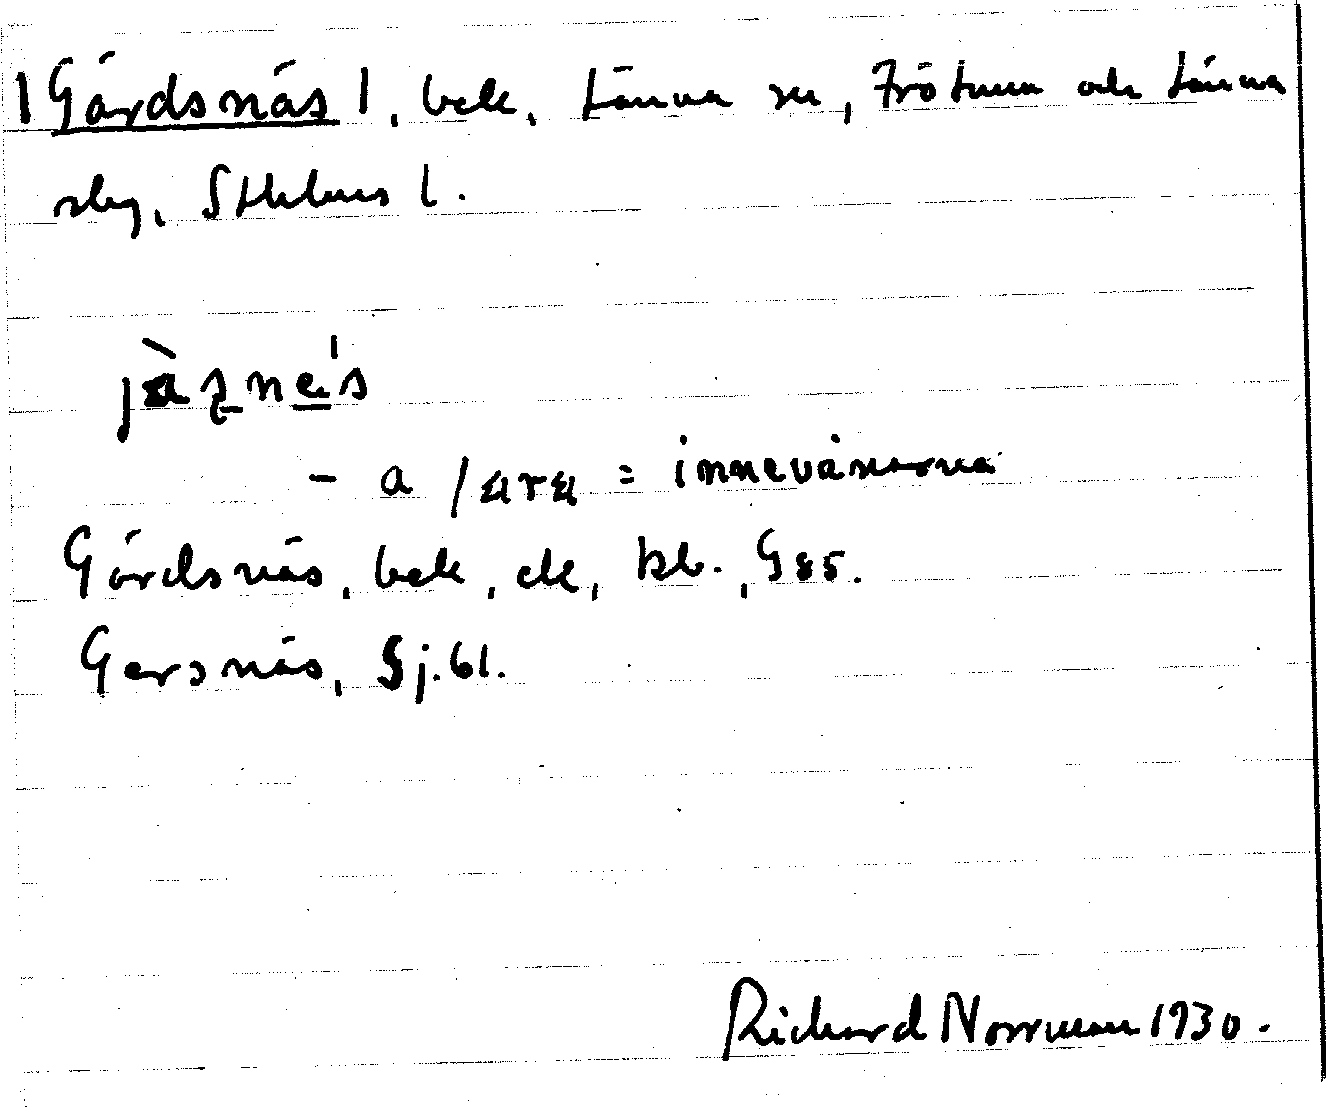 |Gärdsnäs|, bele, Länna sn, Frötuna och Länna
slg, Sthlms l.
jàʂnés
- a /ara = innevånarna
Gärdsnäs, bele, ek, kb., G85.
Gersnäs, Sj.61.
Richard Norrman 1930.